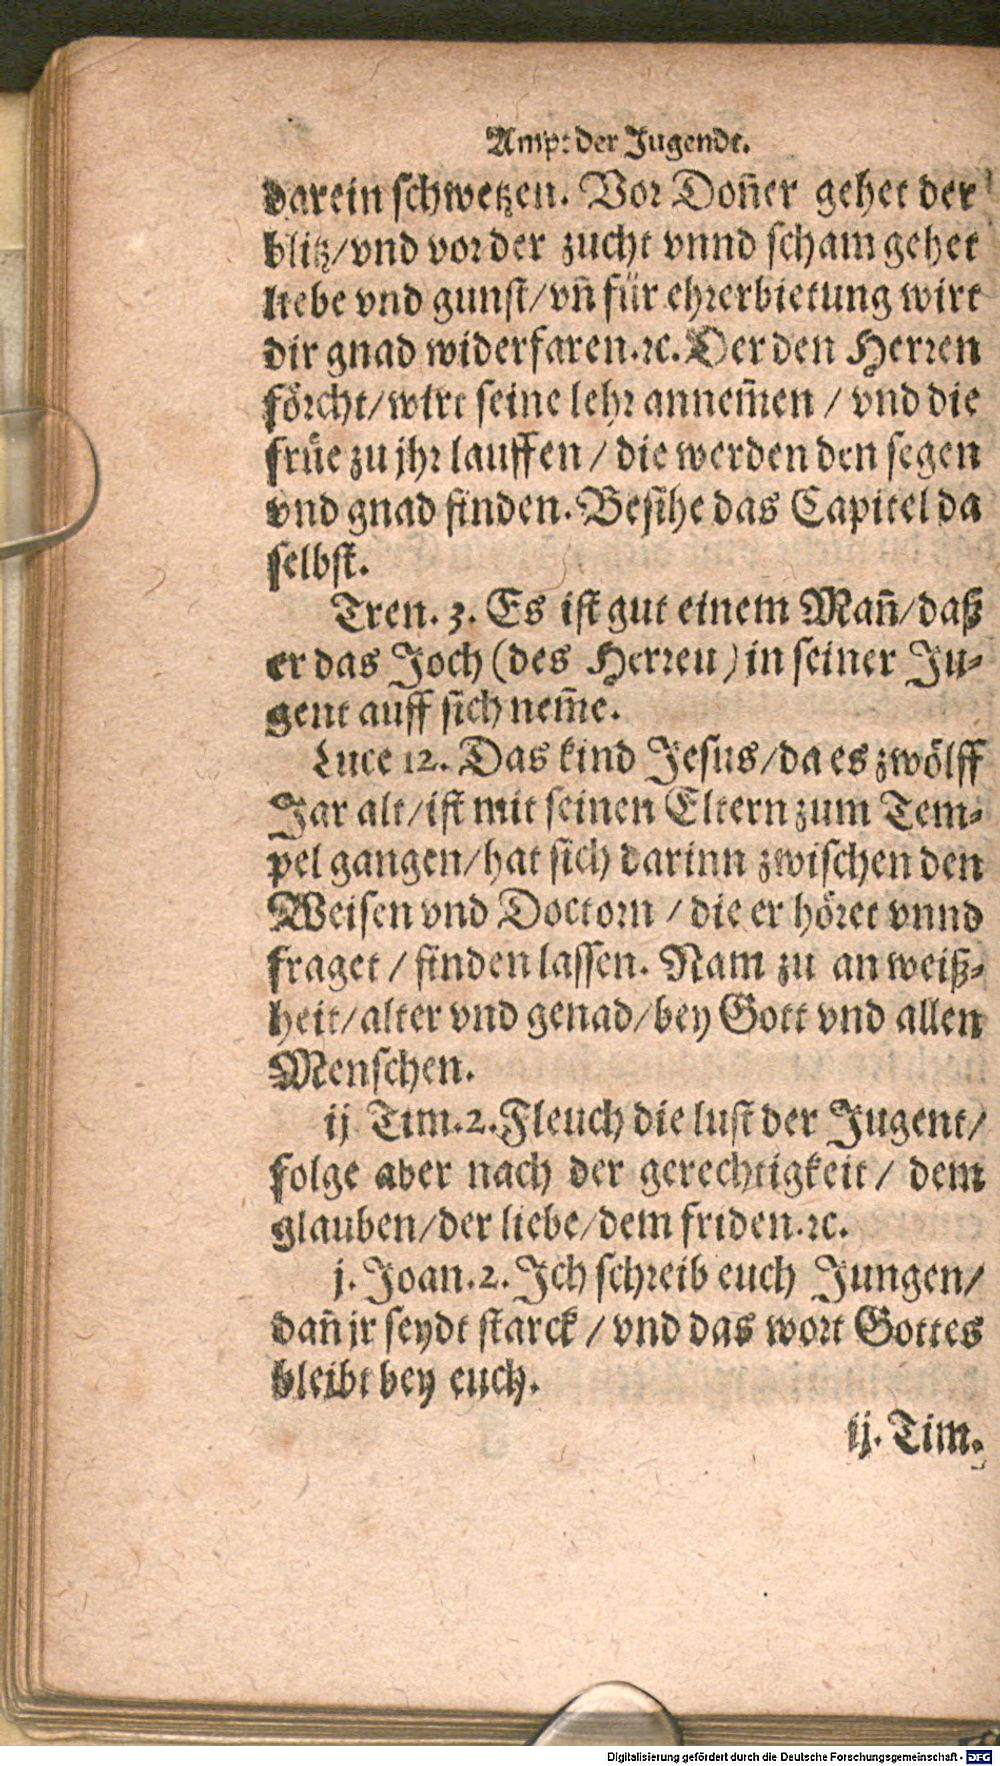 Ampt der Jugendt.
darein schwetzen. Vor Doñer gehet der
blitz/vnd vor der zucht vnnd scham gehet
liebe vnd gunst/vñ für ehrerbietung wirt
dir gnad widerfaren.ꝛc. Der den Herren
förcht/wirt seine lehr annem̃en / vnd die
frůe zu jhr lauffen / die werden den segen
vnd gnad finden. Besihe das Capitel da
selbst.
Tren. 3. Es ist gut einem Mañ/daß
er das Joch (des Herren) in seiner Ju-
gent auff sich nem̃e.
Luce 12. Das kind Jesus/da es zwölff
Jar alt/ist mit seinen Eltern zum Tem-
pel gangen/hat sich darinn zwischen den
Weisen vnd Doctorn / die er höret vnnd
fraget / finden lassen. Nam zu an weiß-
heit/alter vnd genad/bey Gott vnd allen
Menschen.
ij Tim.2. Fleuch die lust der Jugent/
folge aber nach der gerechtigkeit/ dem
glauben/der liebe/dem friden.ꝛc.
j. Joan.2. Ich schreib euch Jungen/
dañ jr seydt starck / vnd das wort Gottes
bleibt bey euch.
ij. Tim.
Digitalisierung gefördert durch die Deutsche Forschungsgemeinschaft - DFG